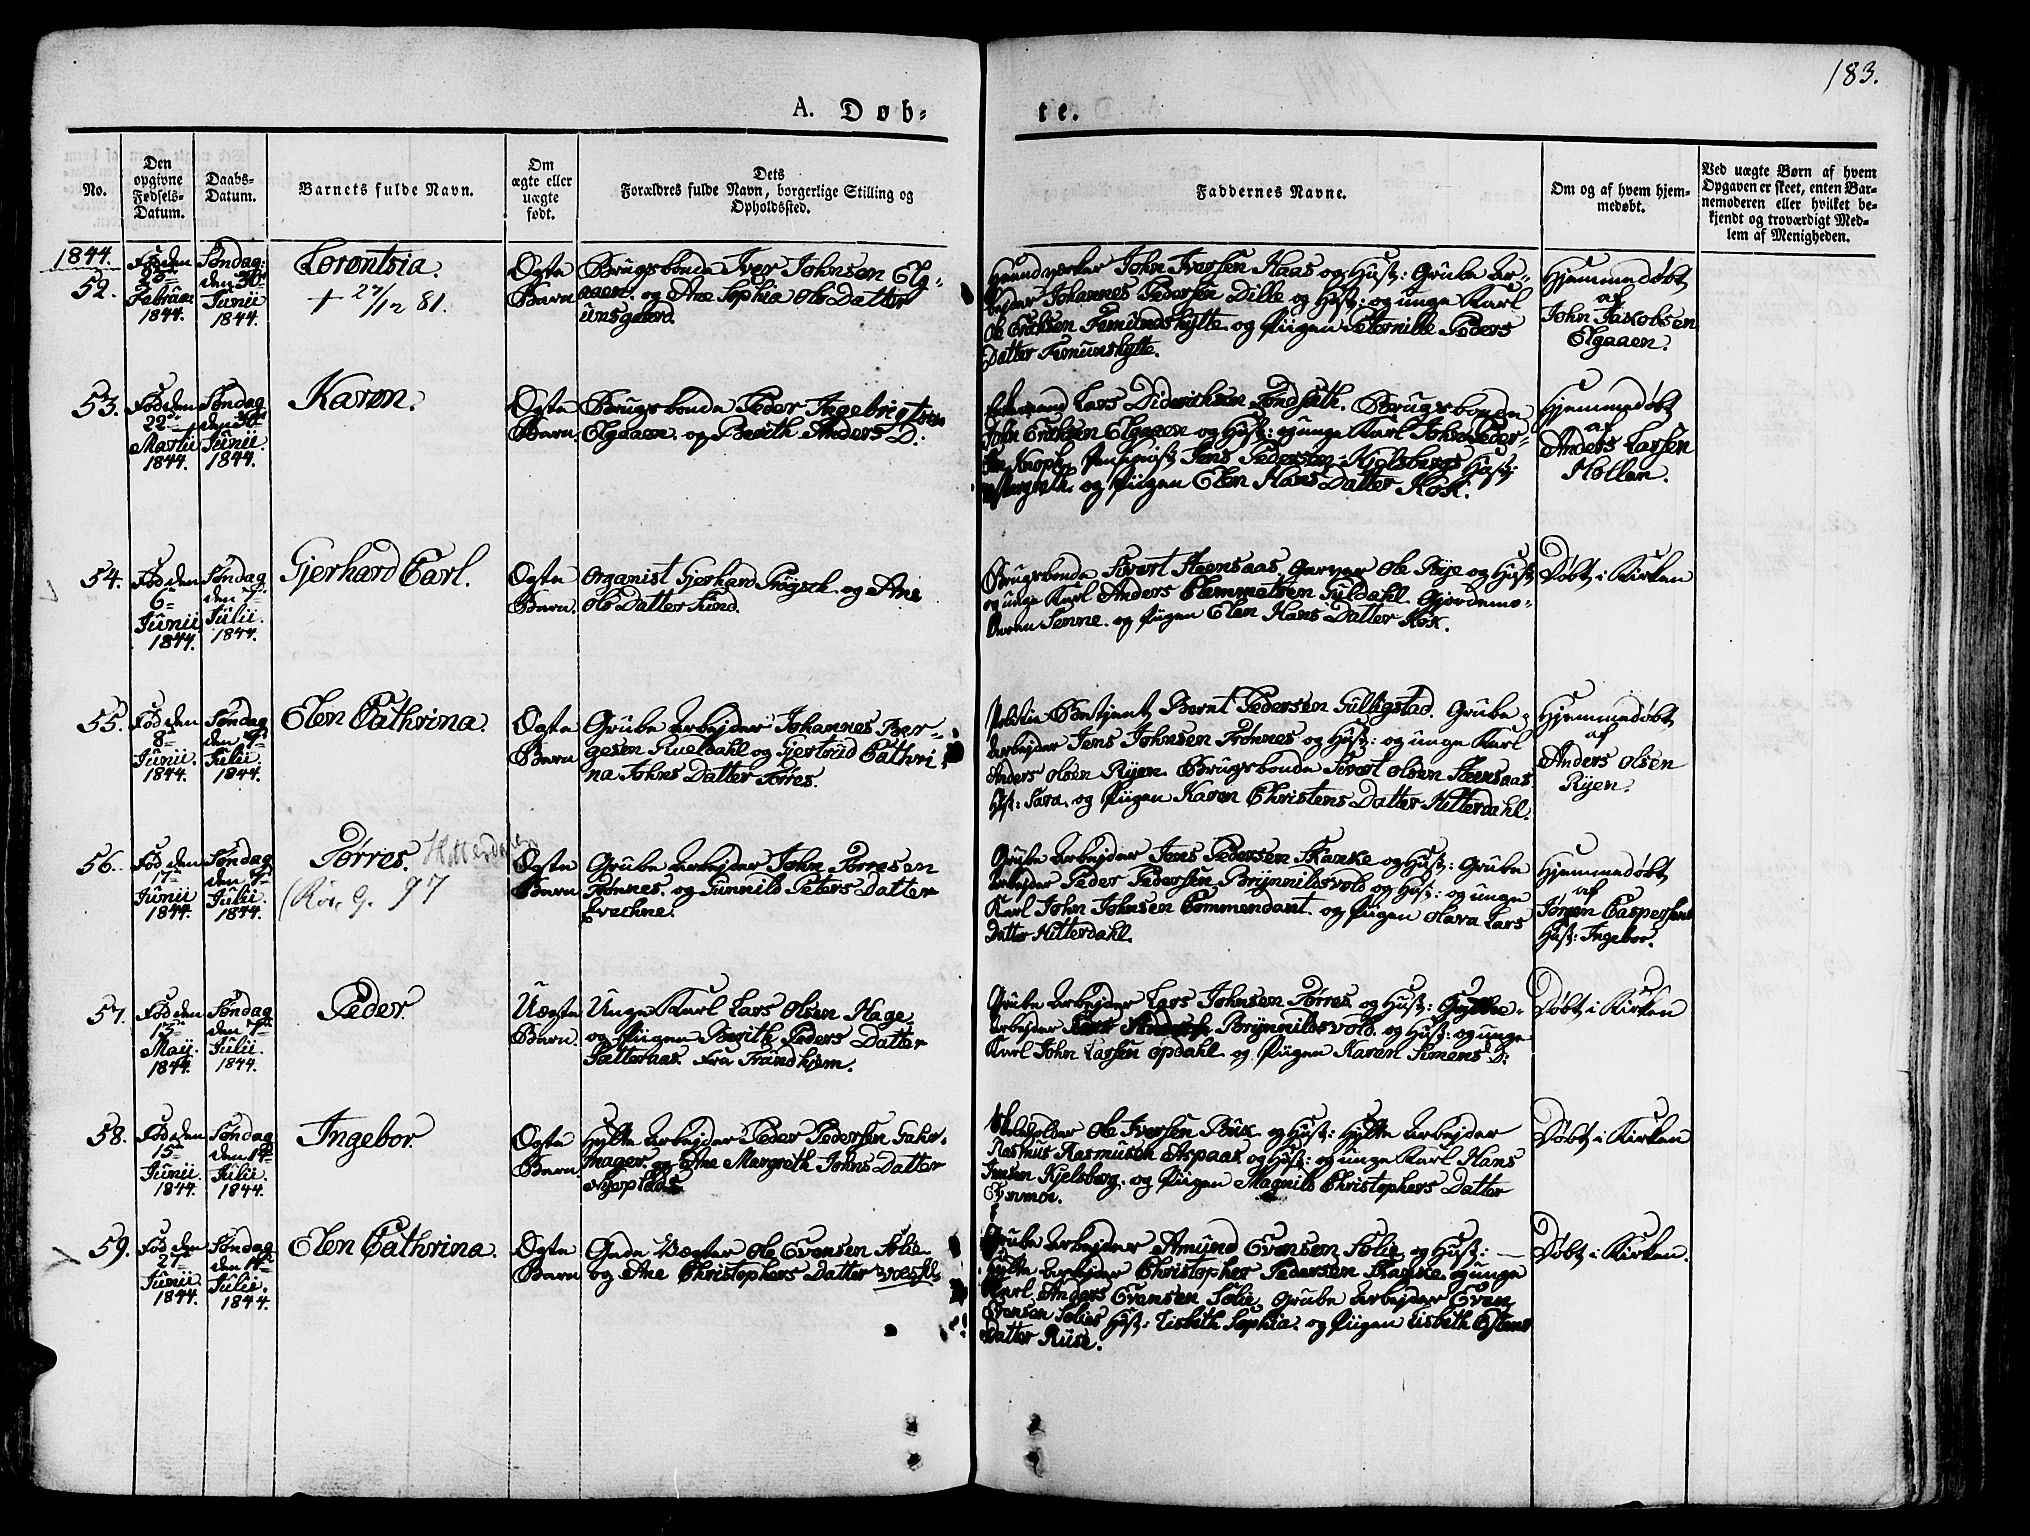 183.
A. Døb-
te.
No.
Den
opgivne
Fødsels-
Datum.
Daabs-
Datum.
Barnets fulde Navn.
Om
ægte eller
uægte
født.
Dets
Forældres fulde Navn, borgerlige Stilling og
Opholdssted.
Faddernes Navne.
Om og af hvem hjem-
medøbt.
Ved uægte Børn af hvem
Opgaven er skeet, enten Bar-
nemoderen eller hvilket be-
kjendt og troværdigt Med-
lem af Menigheden.
1844.
52.
Fød den
Februar
1844.
Søndag
den 30te
Junii
1844.
Lorentsia.
+ 27/12 81.
Ægte
Barn
Brugsbonde Iver Johnsen Elg-
aaen. og Ane Sophia Ols Datter
Haandværker John Iversen Haas og Hust: Grube Ar-
bejder Johannes Pedersen Dille og Hust: og unge Karl
Ole Eriksen Femundshytte. og Pigen Peternille Peders
Datter Femunshytte.
Hjemmedøbt
af
John Jakobsen
Elgaaen.
53.
Fød den
22de
Martii
1844.
Søndag
den 30te
Junii
1844.
Karen.
Ægte
Barn
Brugsbonde Peder Ingebrigtsen
Elgaaen. og Berith Anders D:
Lars Dideriksen Tondseth. Brugsbonde
John Eriksen Elgaaen og Hust: og unge Karl John Peder-
sen Knoph. Jens Pedersen Kjelsbergs Hust:
Margreth. og Pigen Elen Hans Datter Kok.
Hjemmedøbt
af
Anders Larsen
Hollen.
54.
Fød den
6te
Junii
1844.
Søndag
den 7de
Julii.
1844.
Gjerhard Carl.
Ægte
Barn.
Organist Gjerhard og Ane
Ols Datter Lund.
Brugsbonde Sivert Steensaas, Garver Ole Rye og Hust
og unge Karl Anders Clemmetsen Guldahl. Gjordemo-
deren Senne. og Pigen Elen Hans Datter Kok.
Døbt i Kirken
55.
Fød den
8de
Junii
1844.
Søndag
den 7de
Julii
1844.
Elen Cathrina.
Ægte
Barn
Grube Arbejder Johannes Ber-
gesen Rueldahl og Gjertrud Cathri-
na Johns Datter Torres.
Bestjent Bernt Pedersen Gulligstad. Grube
Arbejder Jens Johnsen Trønnes og Hust: og unge Karl
Anders Olsen Ryen. Brugsbonde Sivert Olsen Steensaas
Hst: Sara. og Pigen Karen Christens Datter Hitterdahl.
Hjemmedøbt
af
Anders Olsen
Ryen.
56.
Fød den
17de
Junii
1844.
Søndag
den 7de
Julii
1844.
Tørres. Hitterdalen
(Rør. G. 97
Ægte
Barn
Grube Arbejder John Torresen
Trønnes. og Gunnild Peters Datter
Grube Arbejder Jens Pedersen Skanke og Hust: Grube
Arbejder Peder Pedersen Brynnildsvold og Hust: og unge
Karl John Johnsen Commendant. og Pigen Olava Lars
Datter Hitterdahl.
Hjemmedøbt
af
Jørgen Caspersens
Hust: Ingebor.
57.
Fød den
13de
Maji.
1844.
Søndag
den 7de
Julii.
1844.
Peder.
Uægte
Barn.
Unge Karl Lars Olsen Hage,
og Pigen Berith Peders Datter
Satteraas. Fra Trondhjem.
Grube Arbejder Lars Johnsen Torres. og Hust: Hytte
Arbejder Brynnildsvold. og Hust: og unge
Karl John Larsen Opdahl. og Pigen Karen Simens D:
Døbt i Kirken
58.
Fød den
15de
Junii
1844.
Søndag
den 14de
Julii.
1844.
Ingebor.
Ægte
Barn.
Hytte Arbejder Peder Pedersen Gahr-
mager. og Ane Margreth Johns Datter
Nyeplads.
Skoleholder Ole Iversen Buk. og Hust: Hytte Arbejder
Rasmus Rasmusen Aspaas. og Hust: og unge Karl Hans
Jensen Kjelsberg. og Pigen Magnild Christophers Datter
Døbt i Kirken
59.
Fød den
27de
Junii
1844.
Søndag
den 14de
Julii.
1844.
Elen Cathrina.
Ægte
Barn
Gade Vægter Ole Evensen Solie
og Ane Christophers Datter
Grube Arbejder Amund Evensen Solie. og Hust: —
Hytte Arbejder Christopher Pedersen Skanke. og unge
Karl Anders Evensen Solie, Grube Arbejder Even
Evensen Solies Hust: Lisbeth Sophia. og Pigen Lisbeth Estens
Datter Ruse.
Døbt i Kirken.